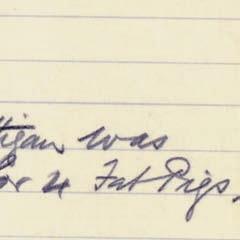 tigan was
for 4 Fat Pigs,